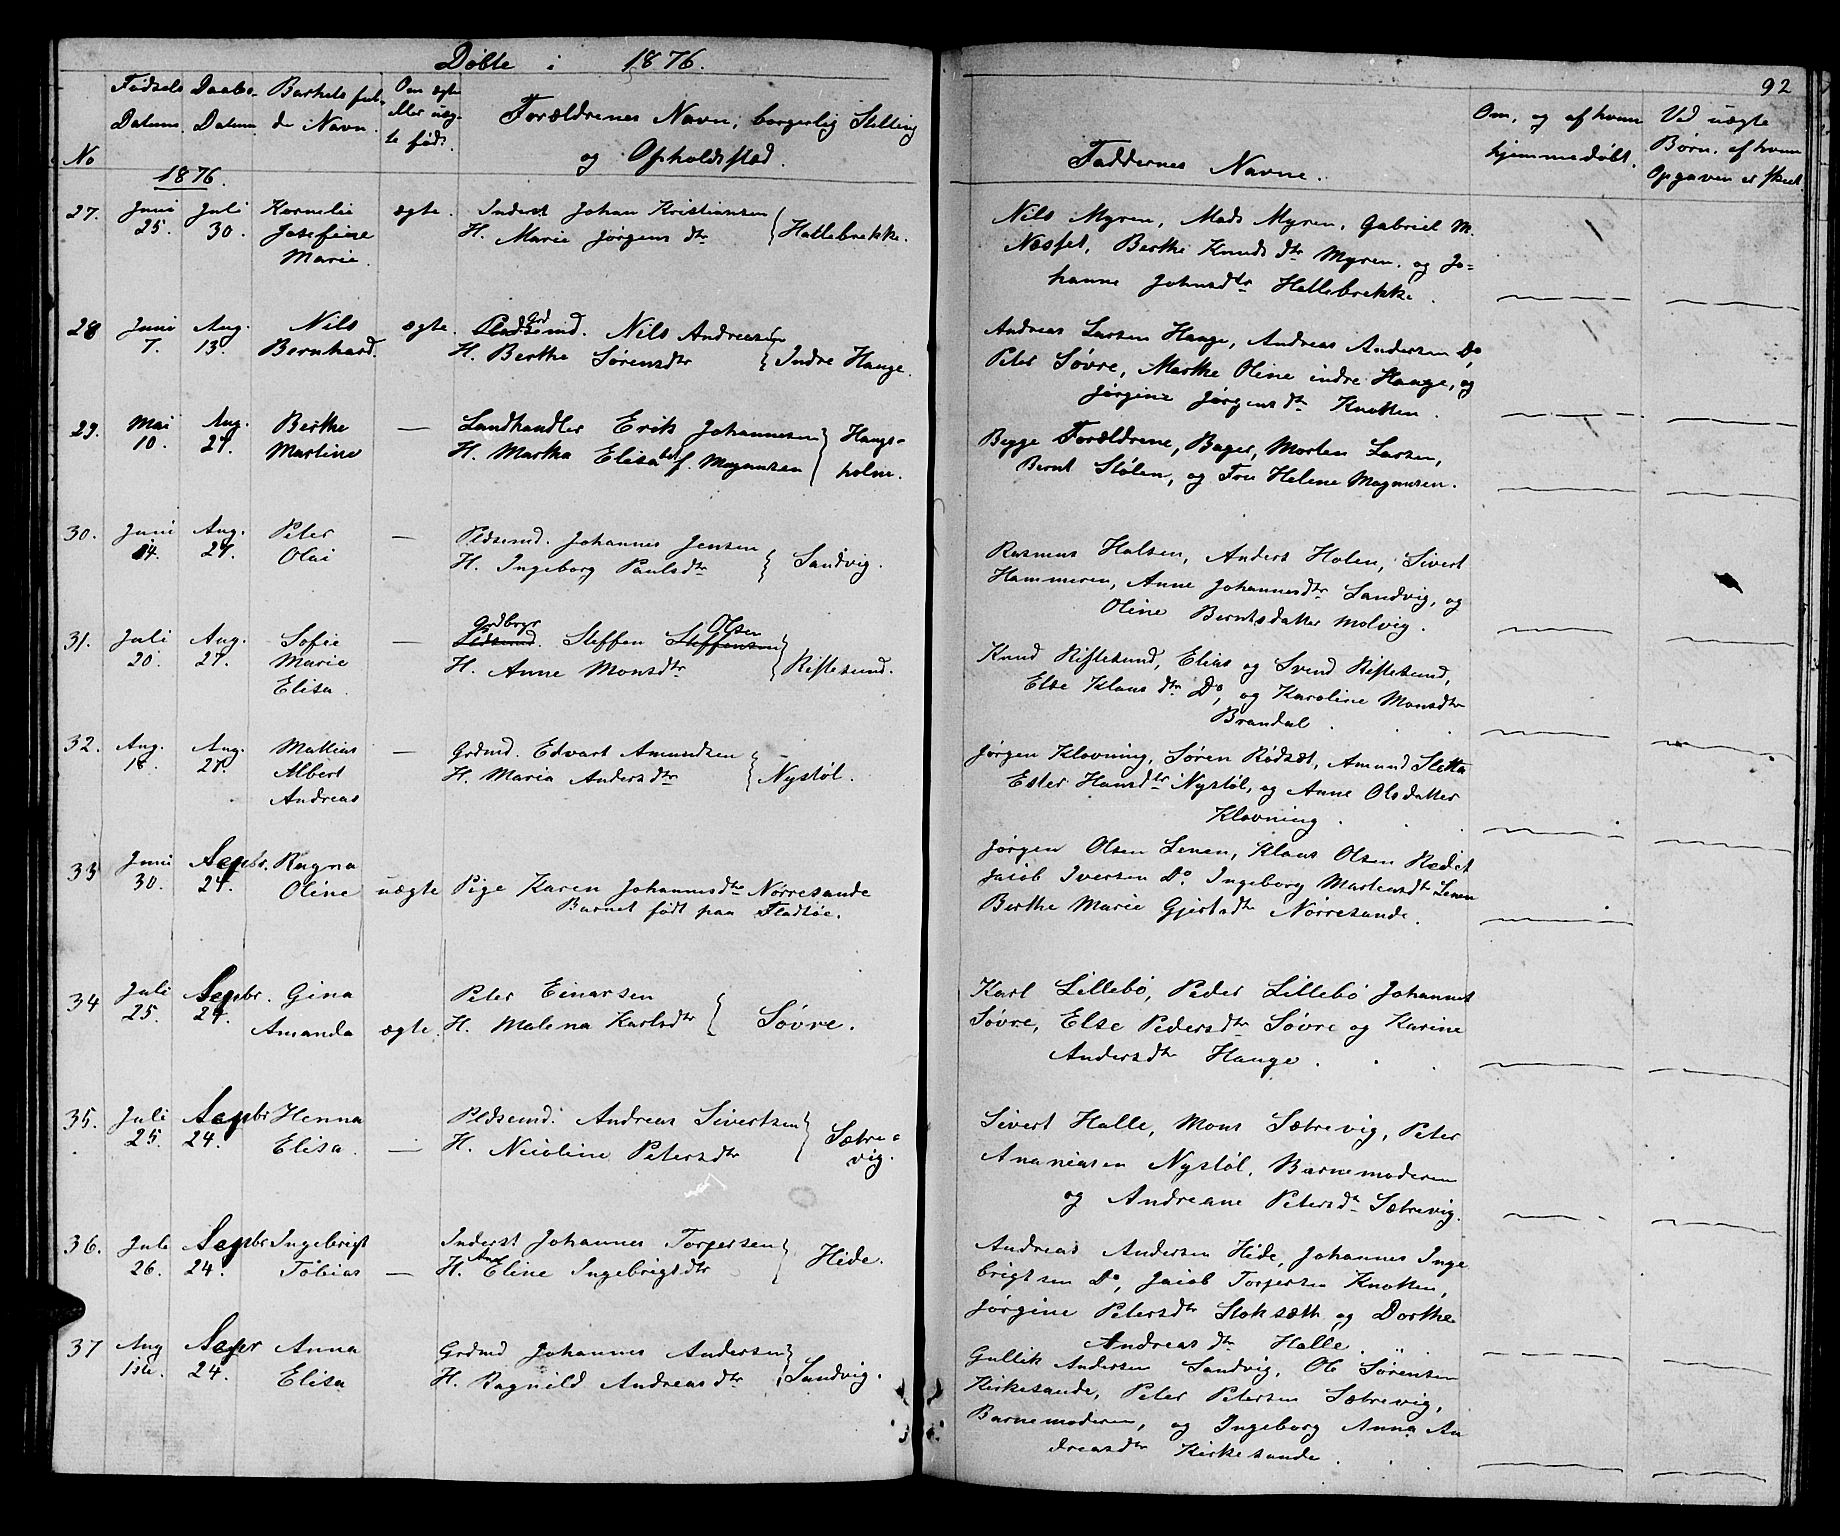 Døbte i 1876.
92
No
Fødsels Datum
Daabs- Datum
Barnets fulde Navn.
Om ægte eller uægte født.
Forældrenes Navn, borgerlig Stilling og Opholdssted.
Faddernes Navne.
Om, og af hvem hjemmedøbt.
Ved uægte Børn, af hvem Opgaven er skeet
1876.
27. Juni 25. Juli 30. Kornelie Josefine Marie. ægte.
Inderst Johan Kristiansen
H. Marie Jørgensdtr } Hallebrekke.
Nils Myren, Mads Myren, Gabriel M.
Nesset, Berthe Knudsdtr Myren, og Jo-
hanne Johnsdtr Hallebrekke.
28 Juni 7. Aug. 13. Nils Bernhard. ægte.
Grd Pladsemd. Nils Andreasen
H. Berthe Sørensdtr } Indre Hauge.
Andreas Larsen Hauge, Andreas Andersen Do
Peter Søvre, Marthe Oline indre Hauge, og
Jørgine Jørgensdtr Knotten.
29. Mai 10. Aug. 27. Berthe Martine —
Landhandler Erik Johannesen
H. Martha Elisabet f. Magnusen } Haugs-
holm.
Begge Forældrene, Bager, Morten Larsen,
Bernt Stølen, og Fru Helene Magnusen.
30. Juni 14. Aug. 27. Peter Olai —
Pldsemd. Johannes Jensen
H. Ingeborg Paulsdtr } Sandvig.
Rasmus Halsen, Anders Holen, Sivert
Hammeren, Anne Johannesdtr Sandvig, og
Oline Berntsdatter Molvig.
31. Juli 20. Aug. 27. Sofie Marie Elisa. —
Grdbrgr Pldsemd. Steffen Steffensen Olsen
H. Anne Monsdtr } Riftesund.
Knud Riftesund, Elias og Svend Riftesund,
Else Klausdtr Do, og Karoline Monsdtr
Brandal.
32. Aug. 18. Aug. 27. Mathias Albert Andreas —
Grdmd. Edvart Amundsen
H. Maria Andersdtr } Nystøl.
Jørgen Klovning, Søren Rødsæt, Amund Sletta
Ester Hansdtr Nystøl, og Anne Olsdatter
Klovning.
33 Juni 30. Septbr. 24. Ragna Oline uægte
Pige Karen Johannesdtr Nørresande
Barnet født paa Fladtøe.
Jørgen Olsen Lenen, Klaus Olsen Rødet
Jacob Iversen Do. Ingeborg Martensdtr Lenen
Berthe Marie Gjertsdtr Nørresande.
34 Juli 25. Septbr. 24. Gina Amanda ægte.
Peter Einarsen
H. Malena Karlsdtr } Søvre.
Karl Lillebø, Peder Lillebø Johannes
Søvre, Else Pedersdtr Søvre og Karine
Andersdtr Hauge.
35. Juli 25. Septbr 24. Henna Elisa. —
Pldsemd. Andreas Sivertsen
H. Nicoline Petersdtr } Sætre-
vig.
Sivert Halle, Mons Sætrevig, Peter
Ananiasen Nystøl, Barnemoderen
og Andreane Petersdtr Sætrevig.
36. Juli 26. Septbr 24. Ingebrigt Tobias —
Inderst Johannes Torgersen
H. Ane Eline Ingebrigtsdtr } Hide.
Andreas Andersen Hide, Johannes Inge
brigtsen Do, Jacob Torgersen Knotten,
Jørgine Petersdtr Stoksæth og Dorthe
Andreasdtr Halle.
37 Aug 1ste. Sepr 24. Anna Elisa
Grdmd Johannes Andersen
H. Ragnild Andreasdtr } Sandvig.
Gullik Andersen Sandvig, Ole Sørensen
Kirkesande, Peter Petersen Sætrevig,
Barnemoderen, og Ingeborg Anna An
dreasdtr Kirkesande.